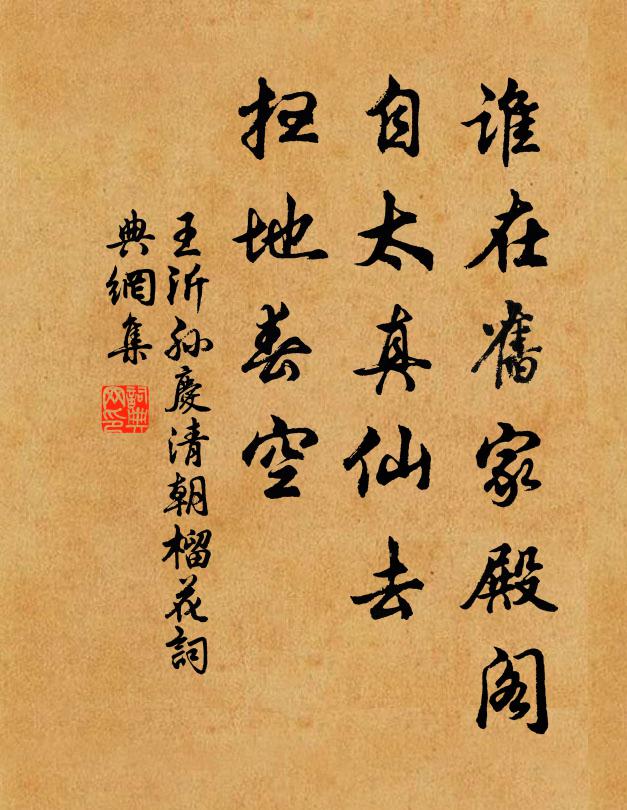 誰在舊家殿閣
自太真仙去
扫地春空
王沂孙慶清朝榴花詞
典網集
詞典网印